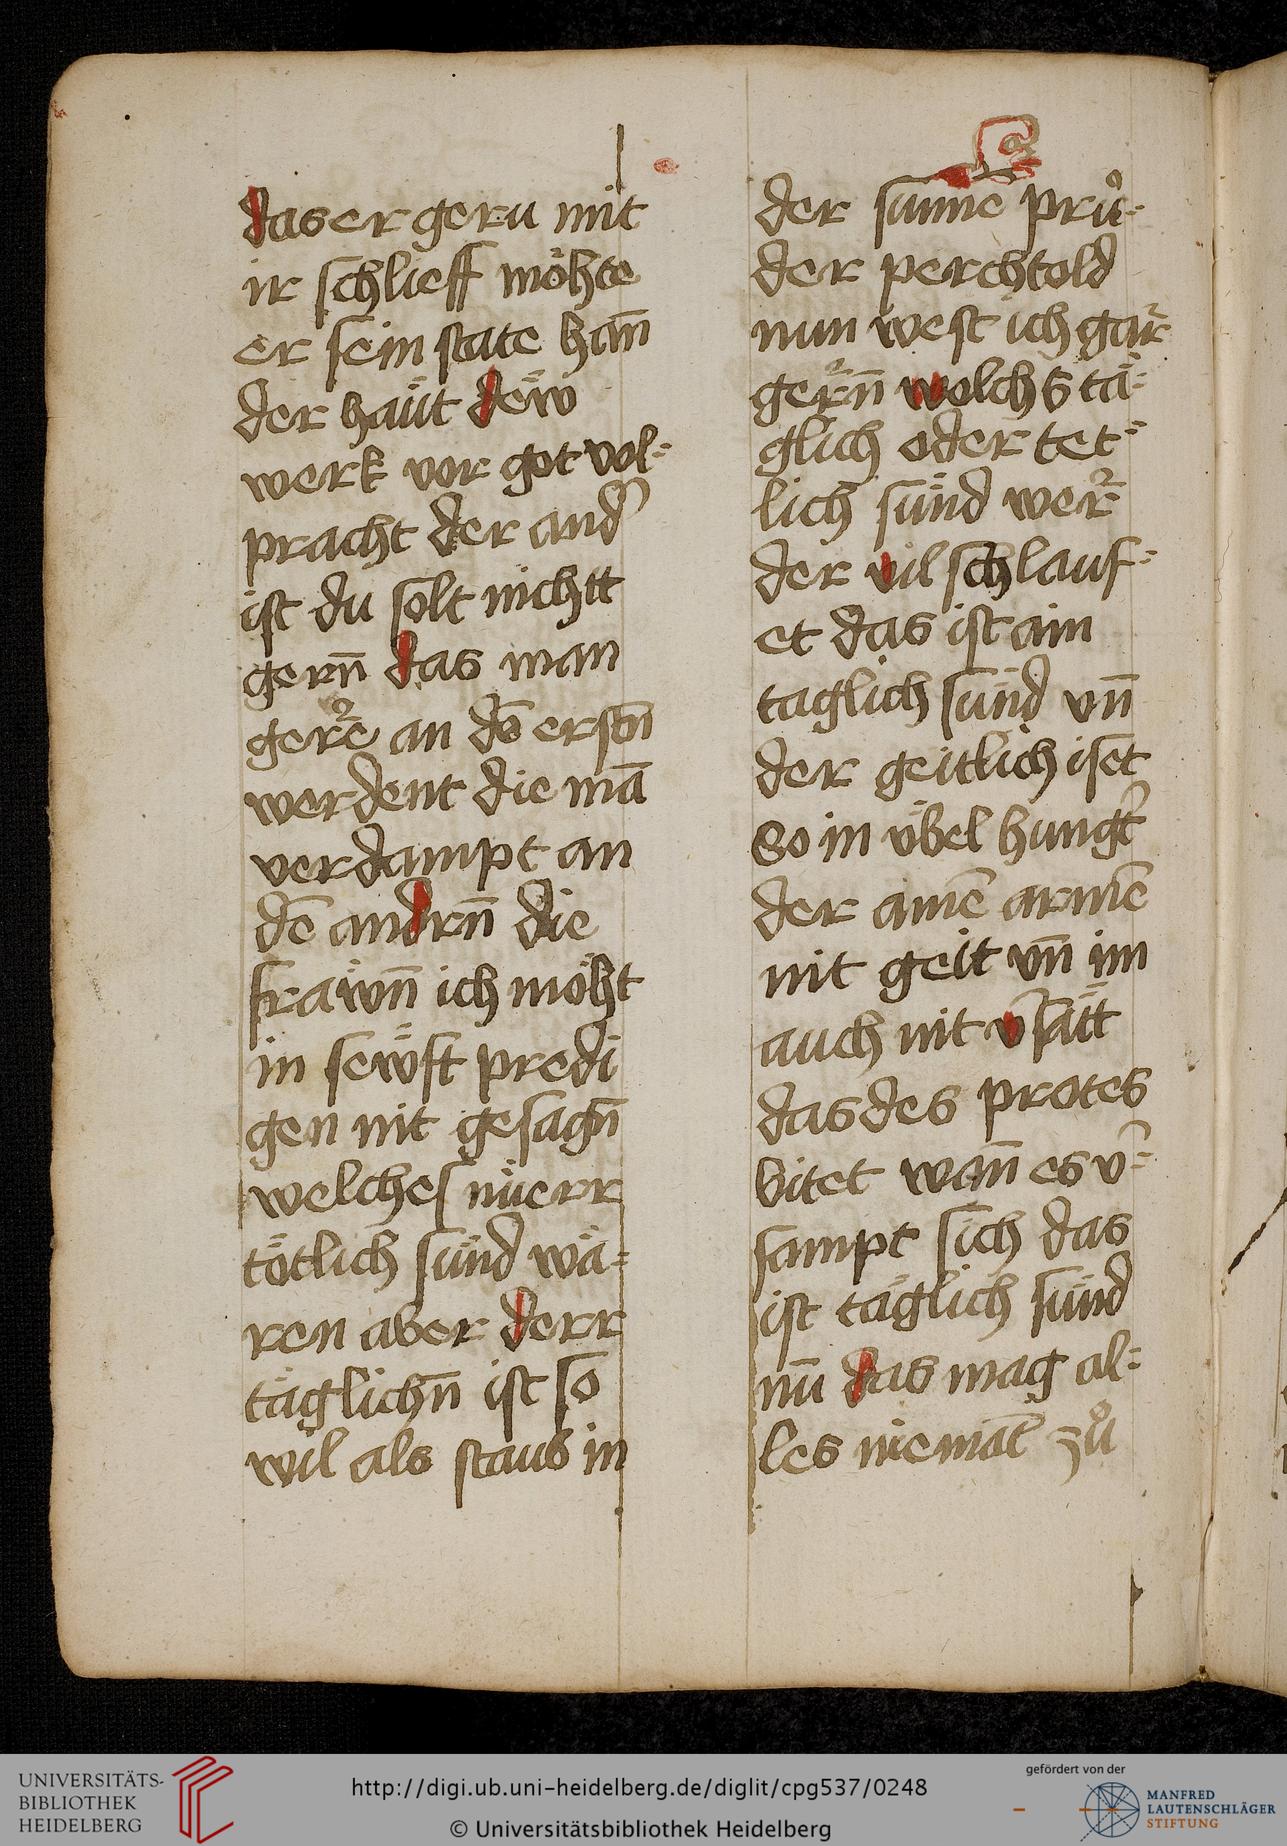 das er geru mit
ir schlieff möhte
er sein state han̄
der haüt dëw
werk vor got vol⸗
pracht der and̕
ist du solt nichtt
gern̄ das man
ger͛ē an dē erstn̄
werdent die mā
verdampt an
dē andrn̄ die
frawn̄ ich möht
in sewft predi
gen nit gesagn̄
welches nüerr
tötlich sünd wä⸗
ren aber derr
täglichn̄ ist so
wil als staub in
der sunne prů⸗
der perchtold
nun west ich gar
gern̄ welchs tä⸗
glich oder tet⸗
lich sünd wer
der vil schlauf⸗
et das ist ain
taglich sünd vn̄
der geitlich iset
so in übel hungt̕
der ainē armē
nit geit vn̄ im
auch nit v̕sätt
das des protes
bitet wan̄ es v̕⸗
sampt sich das
ist täglich sünd
nū das mag al⸗
les niemāt zů
UNIVERSITÄTS-
BIBLIOTHEK
HEIDELBERG
http://digi.ub.uni-heidelberg.de/diglit/cpg537/0248
© Universitätsbibliothek Heidelberg
gefördert von der
MANFRED
LAUTENSCHLÄGER
STIFTUNG